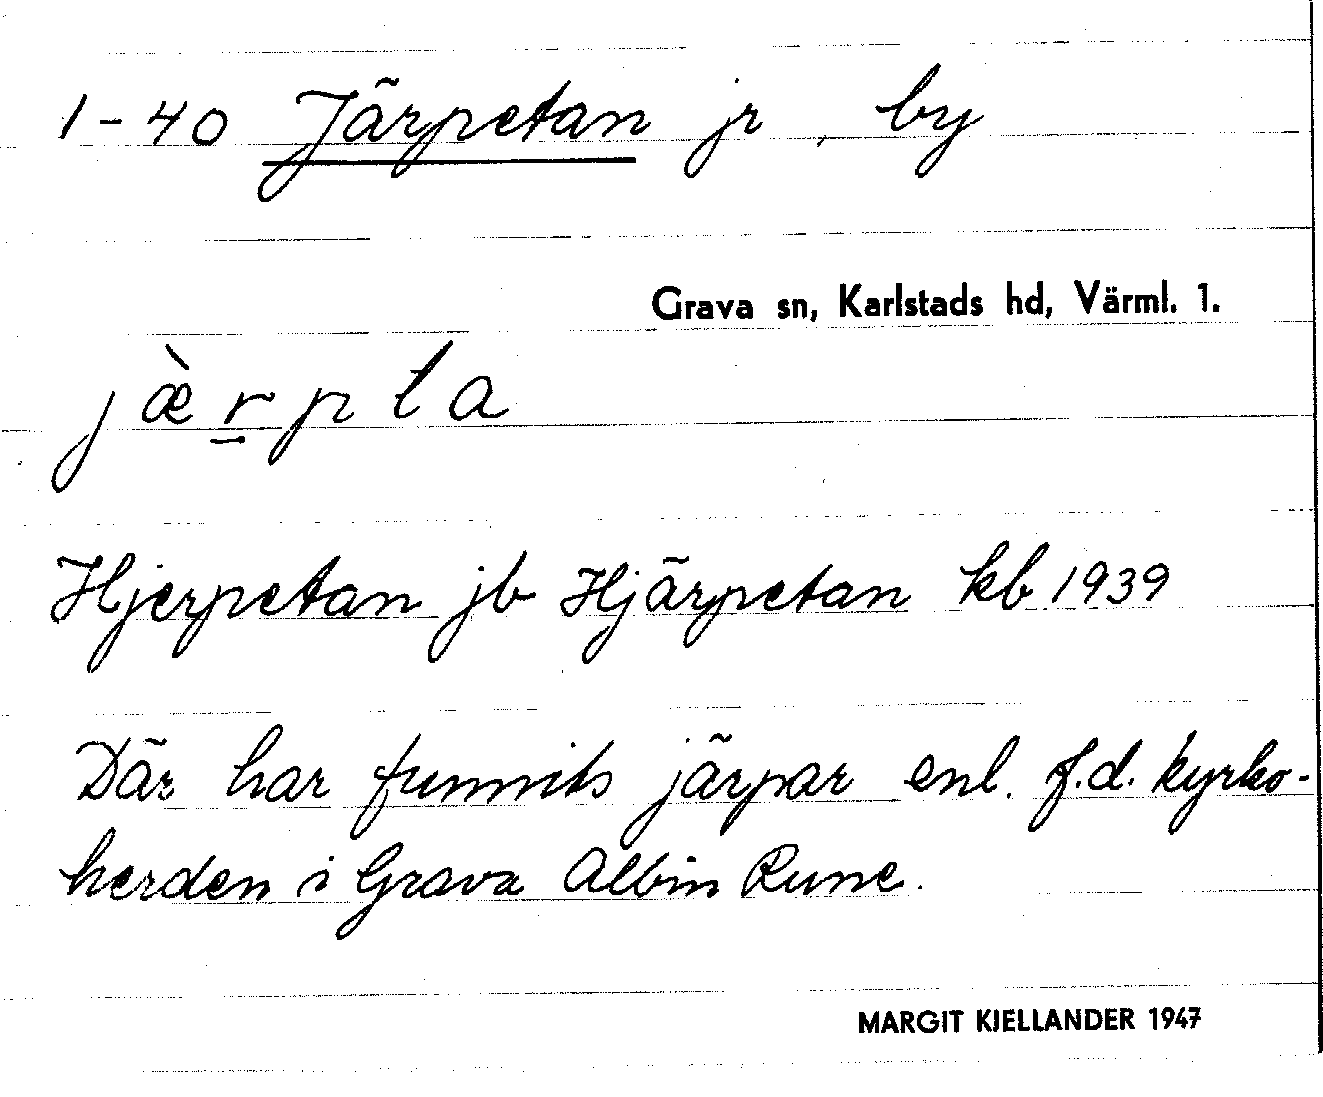 1-40 Järpetan jr, by
Grava sn, Karlstads hd, Värml. 1.
jæ̀r̲pta
Hjerpetan jb Hjärpetan kb 1939
Där har funnits järpar enl. f.d. kyrko-
herden i Grava Albin Rune.
MARGIT KJELLANDER 1947